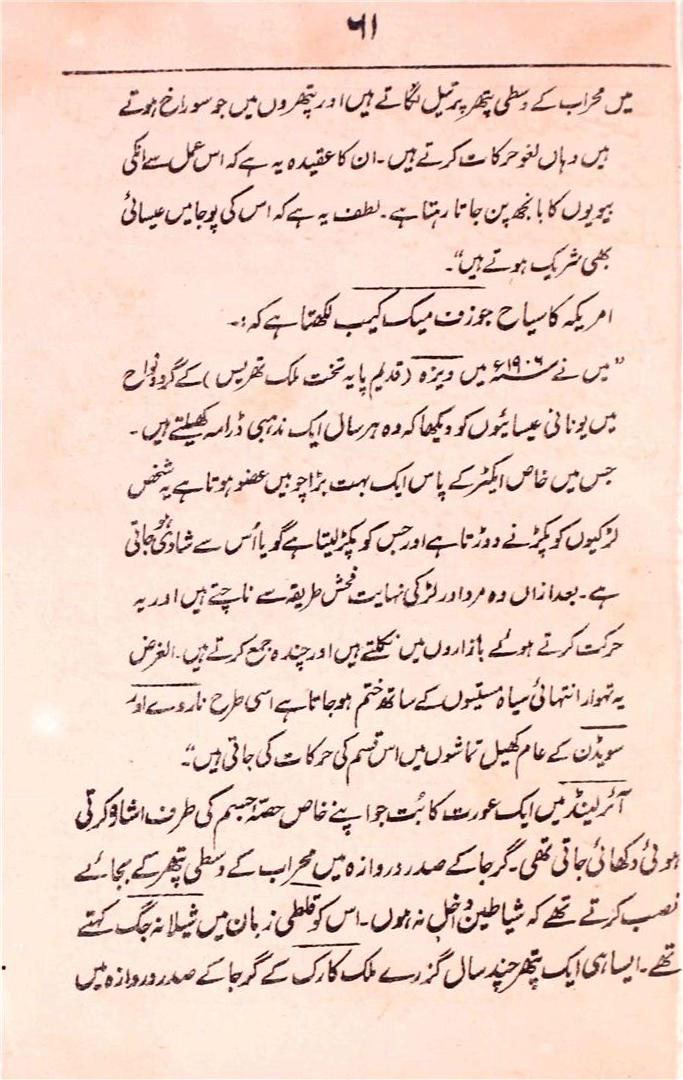 ۶۱
میں محراب کے وسطی پتھر پر تیل لگاتے ہیں اور پتھروں میں جو سوراخ ہوتے
ہیں وہاں لغو حرکات کرتے ہیں۔ ان کا عقیدہ یہ ہے کہ اس عمل سے انکی
بیویوں کا بانجھ پن جاتا رہتا ہے۔ لطف یہ ہے کہ اس کی پوجا میں عیسائی
بھی شریک ہوتے ہیں"۔
امریکہ کا سیاح جوزف میک کیب لکھتا ہے کہ:۔
"میں نے ۱۹۰۶ء میں ویزہ (قدیم پایہ تخت ملک تھریس) کے گرد و نواح
میں یونانی عیسائیوں کو دیکھا کہ وہ ہر سال ایک مذہبی ڈرامہ کھیلتے ہیں۔
جس میں خاص ایکٹر کے پاس ایک بہت بڑا چوبیں عضو ہوتا ہے یہ شخص
لڑکیوں کو پکڑنے دوڑتا ہے اور جس کو پکڑ لیتا ہے گویا اُس سے شادی ہو جاتی
ہے۔ بعد ازاں وہ مرد اور لڑکی نہایت فحش طریقہ سے ناچتے ہیں اور یہ
حرکت کرتے ہوئے بازاروں میں نکلتے ہیں اور چندہ جمع کرتے ہیں۔ الغرض
یہ تہوار انتہائی سیاہ مستیوں کے ساتھ ختم ہو جاتا ہے اسی طرح ناروے اور
سویڈن کے عام کھیل تماشوں میں اس قسم کی حرکات کی جاتی ہیں"۔
آئرلینڈ میں ایک عورت کا بُت جو اپنے خاص حصۂ جسم کی طرف اشارہ کرتی
ہوئی دکھائی جاتی تھی۔ گرجا کے صدر دروازہ میں محراب کے وسطی پتھر کے بجائے
نصب کرتے تھے کہ شیاطین داخل نہ ہوں۔ اس کو قلطی زبان میں شیلا نہ جگ کہتے
تھے۔ ایسا ہی ایک پتھر چند سال گزرے ملک کارک کے گرجا کے صدر دروازہ میں